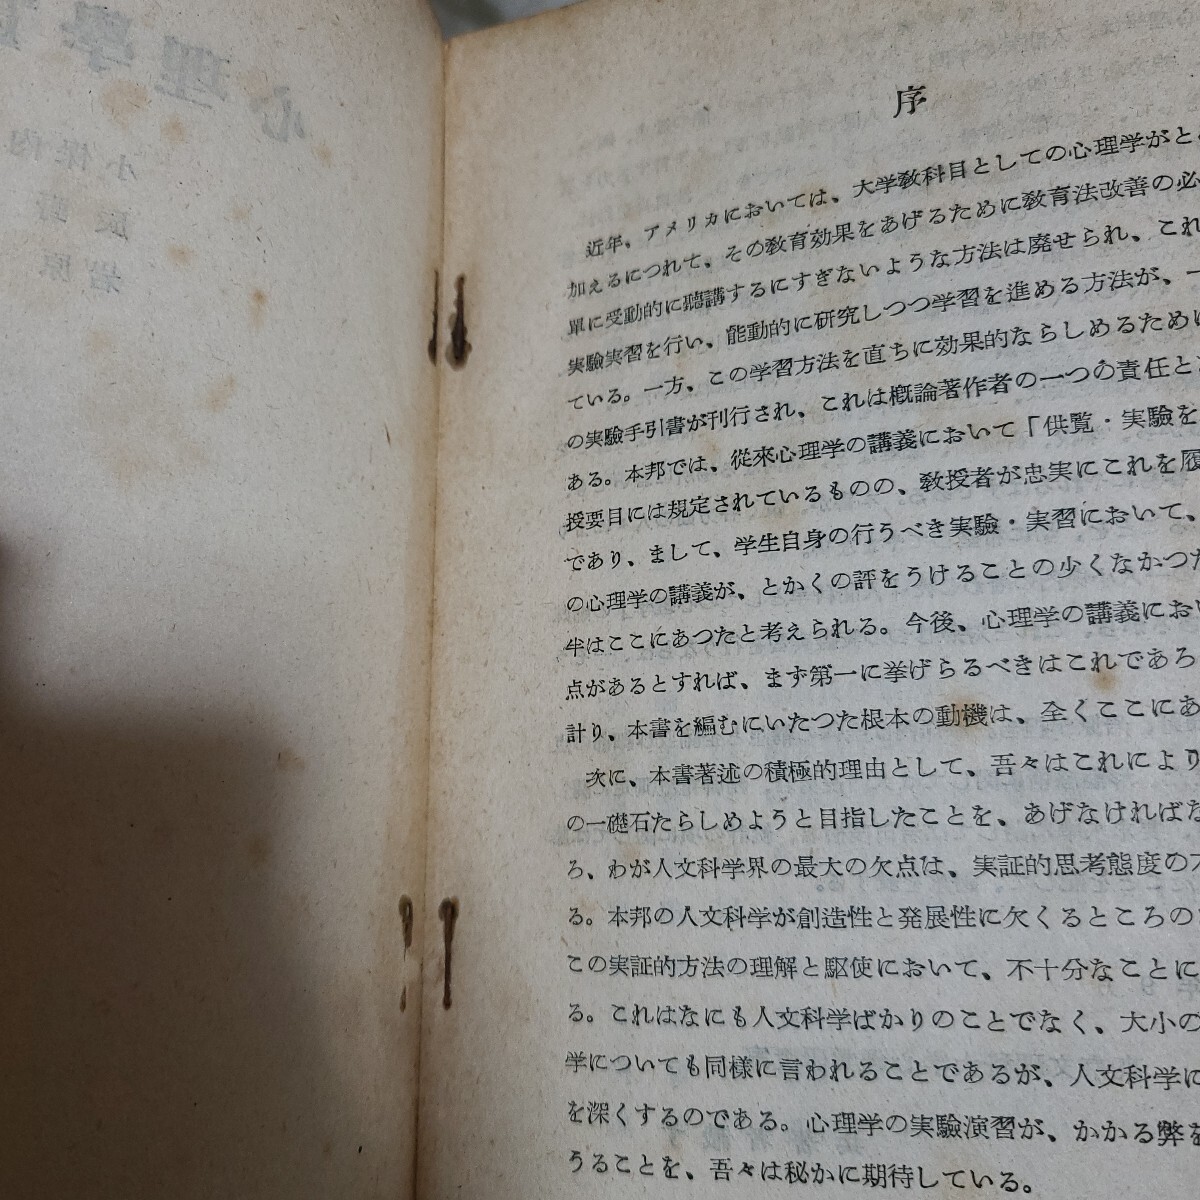 序
近年、アメリカにおいては、大学教科目としての心理学がと
加えるにつれて、その教育効果をあげるために教育法改善の必
單に受動的に聽講するにすぎないような方法は廃せられ、これ
実驗実習を行い、能動的に研究しつつ学習を進める方法が、一
ている。一方、この学習方法を直ちに効果的ならしめるために
の実驗手引書が刊行され、これは概論著作者の一つの責任と
ある。本邦では、從來心理学の講義において「供覧・実驗を
授要目には規定されているものの、教授者が忠実にこれを履
であり、まして、学生自身の行うべき実驗・実習において、
の心理学の講義が、とかくの評をうけることの少くなかつた
半はここにあつたと考えられる。今後、心理学の講義におい
点があるとすれば、まず第一に挙げらるべきはこれであろ
計り、本書を編むにいたつた根本の動機は、全くここにあ
次に、本書著述の積極的理由として、吾々はこれにより
の一礎石たらしめようと目指したことを、あげなければな
ろ、わが人文科学界の最大の欠点は、実証的思考態度の
る。本邦の人文科学が創造性と発展性に欠くるところの
この実証的方法の理解と駆使において、不十分なことに
る。これはなにも人文科学ばかりのことでなく、大小の
学についても同様に言われることであるが、人文科学に
を深くするのである。心理学の実驗演習が、かかる弊を
うることを、吾々は秘かに期待している。